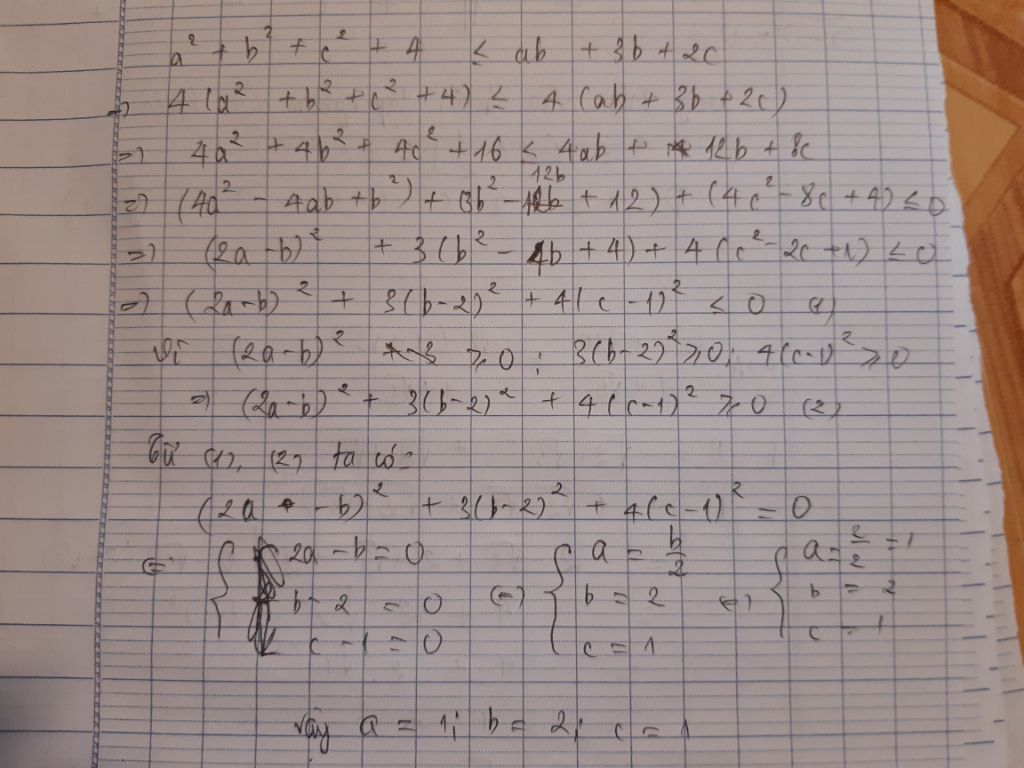 a² + b² + c² + 4 ≤ ab + 3b + 2c
⇒ 4(a² + b² + c² + 4) ≤ 4(ab + 3b + 2c)
⇒ 4a² + 4b² + 4c² + 16 ≤ 4ab + 12b + 8c
⇒ (4a² - 4ab + b²) + (3b² - 12b + 12) + (4c² - 8c + 4) ≤ 0
⇒ (2a - b)² + 3(b² - 4b + 4) + 4(c² - 2c + 1) ≤ 0
⇒ (2a - b)² + 3(b - 2)² + 4(c - 1)² ≤ 0 (1)
Vì (2a - b)² ≥ 0 ; 3(b - 2)² ≥ 0; 4(c - 1)² ≥ 0
⇒ (2a - b)² + 3(b - 2)² + 4(c - 1)² ≥ 0 (2)
Từ (1), (2) ta có:
(2a - b)² + 3(b - 2)² + 4(c - 1)² = 0
⇔ { 2a - b = 0 { a = b/2 { a = 2/2 = 1
b - 2 = 0 ⇔ b = 2 ⇔ b = 2
c - 1 = 0 c = 1 c = 1
Vậy a = 1; b = 2; c = 1